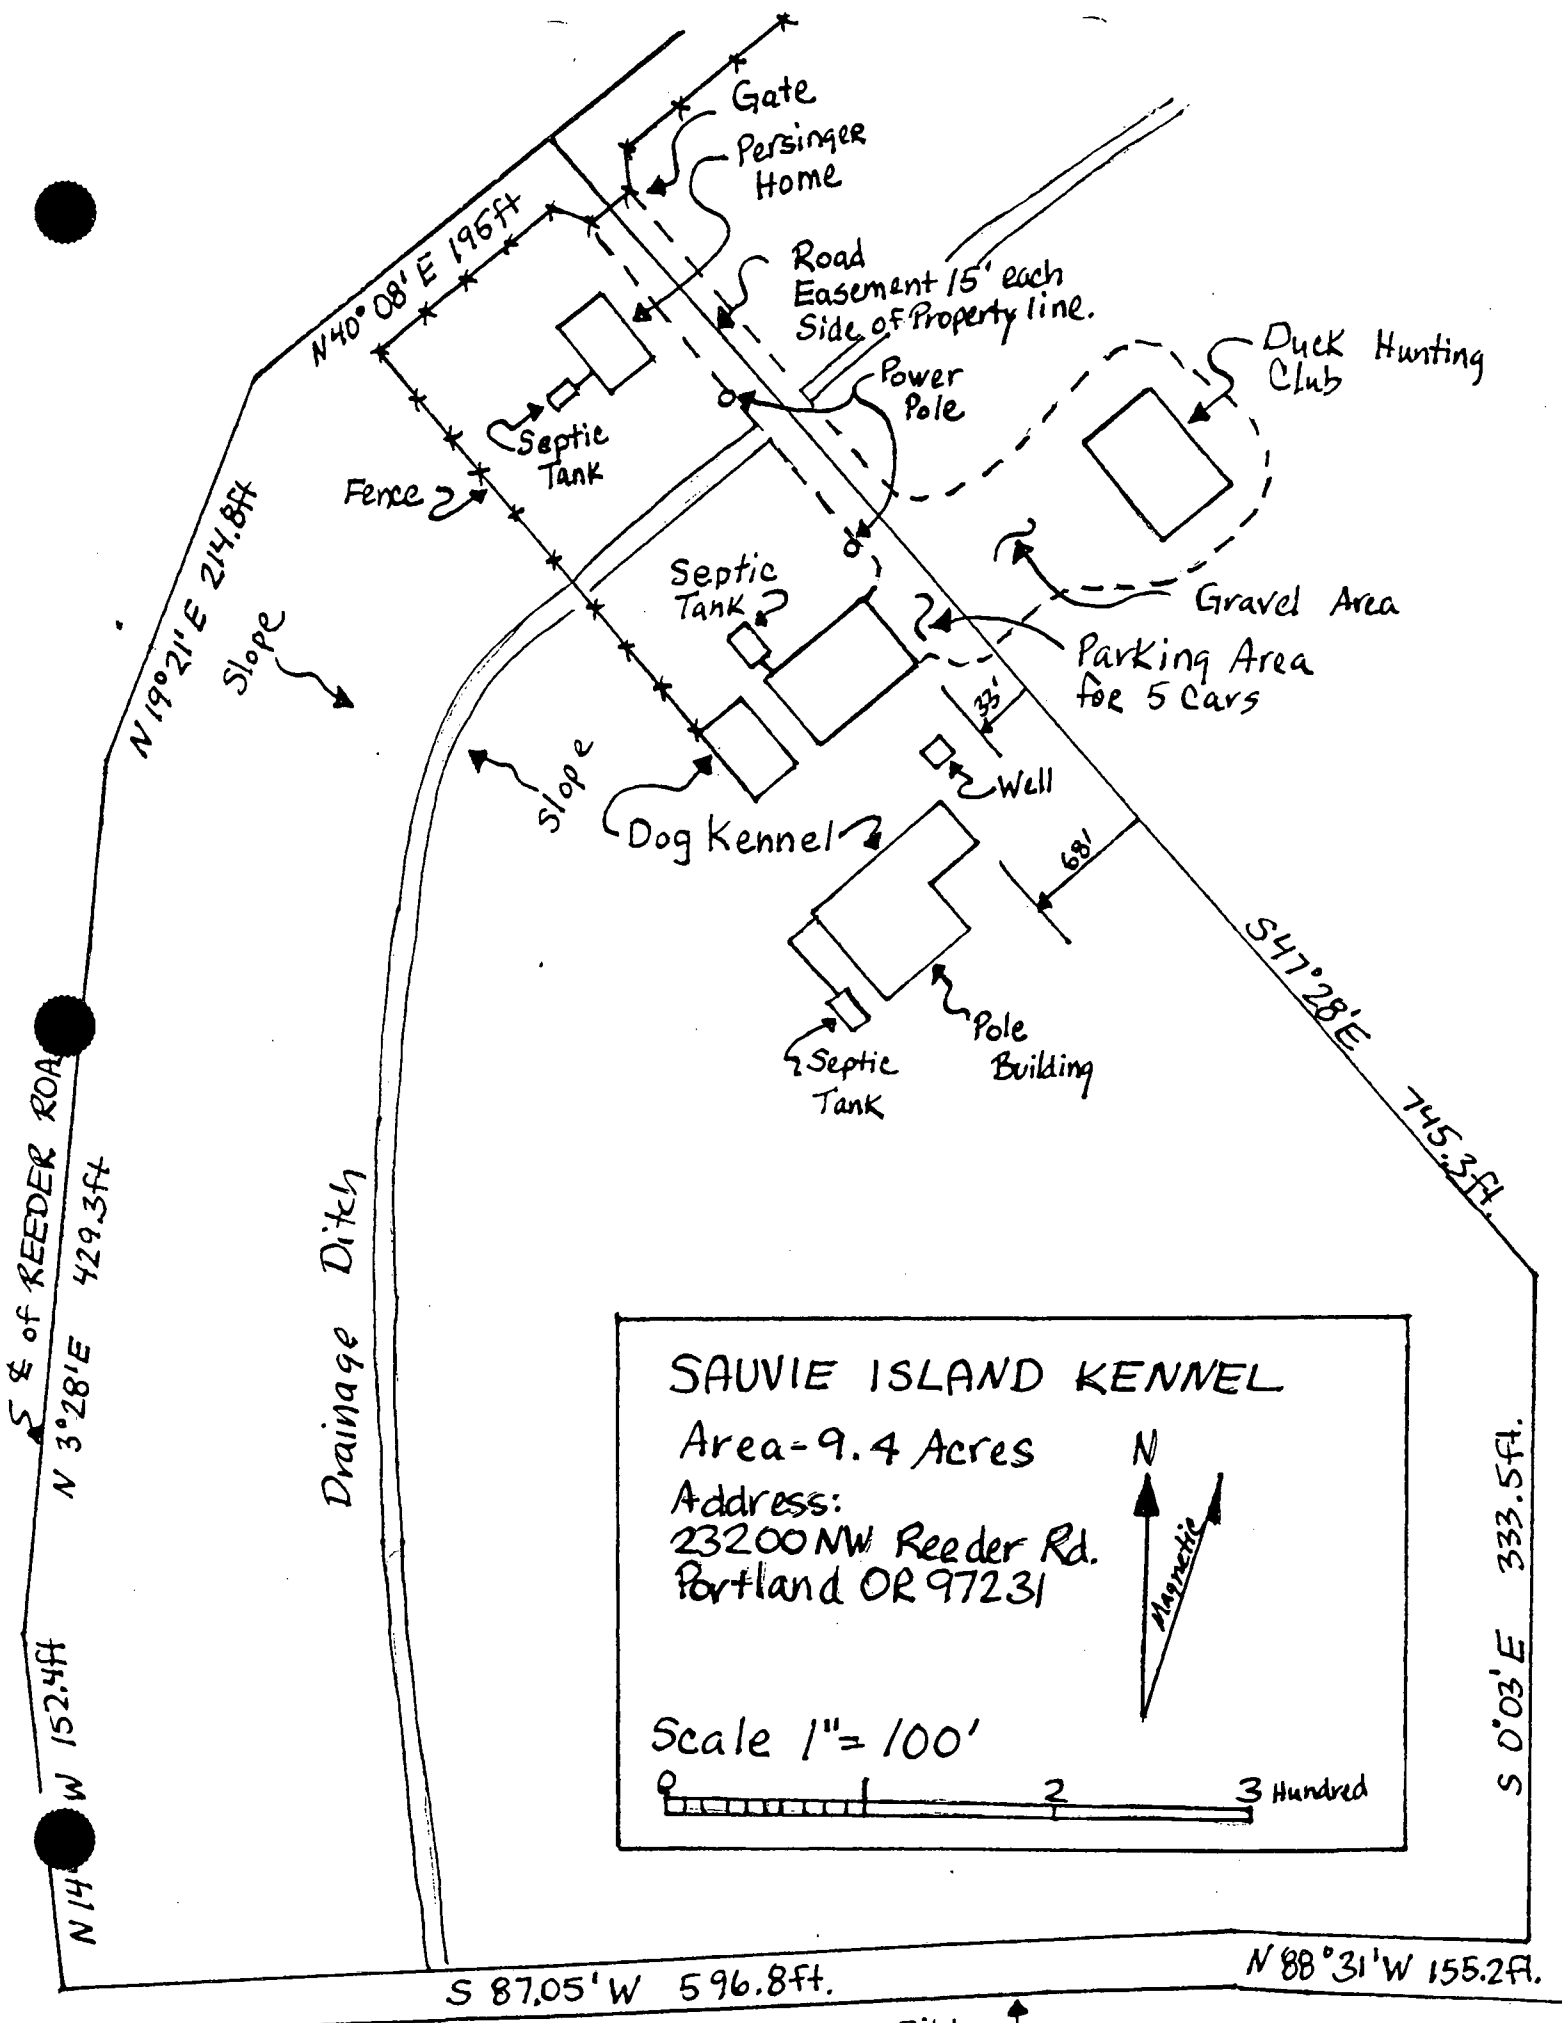 Gate
Persinger
Home
N 40° 08' E 195ft
Road
Easement 15' each
Side of Property line.
Duck Hunting
Club
Power
Pole
Septic
Tank
Fence
N 19° 21' E 214.8ft
Septic
Tank
Gravel Area
Parking Area
for 5 Cars
Slope
33'
Slope
Well
Dog Kennel
68'
S 47° 28' E 745.3ft.
Pole
Building
Septic
Tank
℄ of REEDER ROA
N 3° 28' E 429.3ft
Drainage Ditch
SAUVIE ISLAND KENNEL
Area - 9.4 Acres
N
Address:
23200 NW Reeder Rd.
Portland OR 97231
Magnetic
Scale 1" = 100'
0 1 2 3 Hundred
S 0° 03' E 333.5ft.
N 14 W 152.4ft
S 87.05' W 596.8ft.
N 88° 31' W 155.2ft.